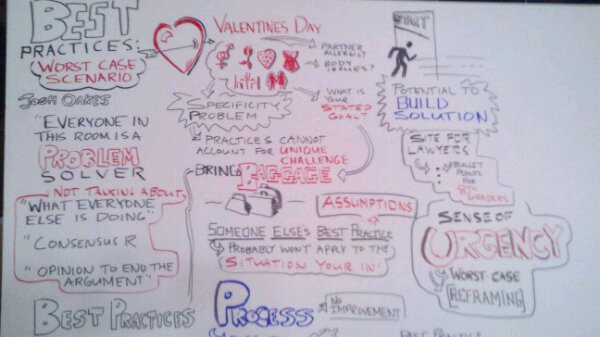 BEST
PRACTICES:
WORST CASE
SCENARIO
JOSH OAKES
"EVERYONE IN
THIS ROOM IS A
PROBLEM
SOLVER
NOT TALKING ABOUT
"WHAT EVERYONE
ELSE IS DOING"
"CONSENSUS R
"OPINION TO END THE
ARGUMENT"
BEST PRACTICES
VALENTINES DAY
PARTNER
ALLERGIC?
BODY
ISSUES?
WHAT IS
YOUR
STATED
GOAL?
SPECIFICITY
PROBLEM
PRACTICES CANNOT
ACCOUNT FOR UNIQUE
CHALLENGE
BRING BAGGAGE
ASSUMPTIONS
SOMEONE ELSE'S BEST PRACTICE
PROBABLY WON'T APPLY TO THE
SITUATION YOUR IN!
PROCESS
NO
IMPROVEMENT
START
POTENTIAL TO
BUILD
SOLUTION
SITE FOR
LAWYERS
BULLET
POINTS
FOR
8TH
GRADERS
SENSE OF
URGENCY
WORST CASE
[REFRAMING]
BEST PRACTICE